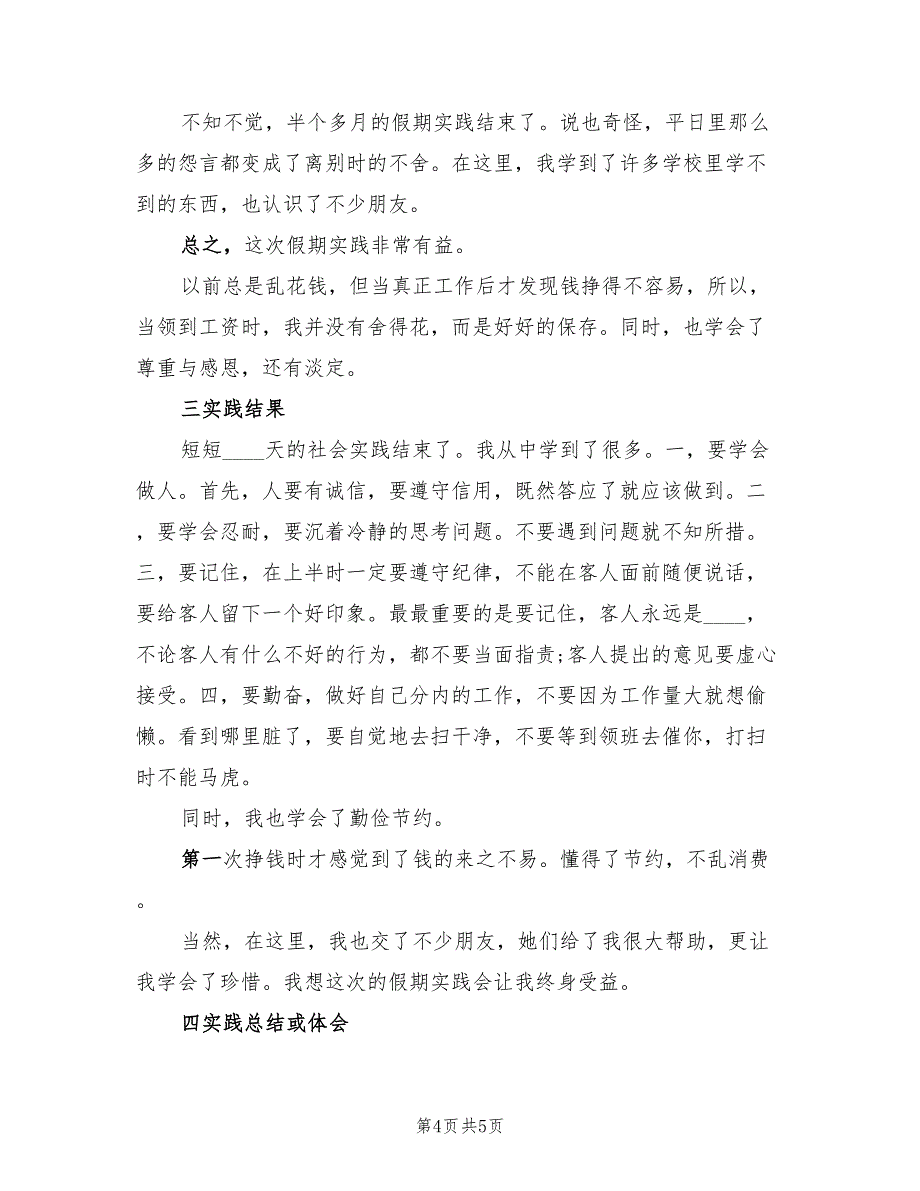 不知不觉，半个多月的假期实践结束了。说也奇怪，平日里那么
多的怨言都变成了离别时的不舍。在这里，我学到了许多学校里学不
到的东西，也认识了不少朋友。
总之，这次假期实践非常有益。
以前总是乱花钱，但当真正工作后才发现钱挣得不容易，所以，
当领到工资时，我并没有舍得花，而是好好的保存。同时，也学会了
尊重与感恩，还有淡定。
三实践结果
短短____天的社会实践结束了。我从中学到了很多。一，要学会
做人。首先，人要有诚信，要遵守信用，既然答应了就应该做到。二
，要学会忍耐，要沉着冷静的思考问题。不要遇到问题就不知所措。
三，要记住，在上半时一定要遵守纪律，不能在客人面前随便说话，
要给客人留下一个好印象。最最重要的是要记住，客人永远是____，
不论客人有什么不好的行为，都不要当面指责;客人提出的意见要虚心
接受。四，要勤奋，做好自己分内的工作，不要因为工作量大就想偷
懒。看到哪里脏了，要自觉地去扫干净，不要等到领班去催你，打扫
时不能马虎。
同时，我也学会了勤俭节约。
第一次挣钱时才感觉到了钱的来之不易。懂得了节约，不乱消费
。
当然，在这里，我也交了不少朋友，她们给了我很大帮助，更让
我学会了珍惜。我想这次的假期实践会让我终身受益。
四实践总结或体会
第4页 共5页